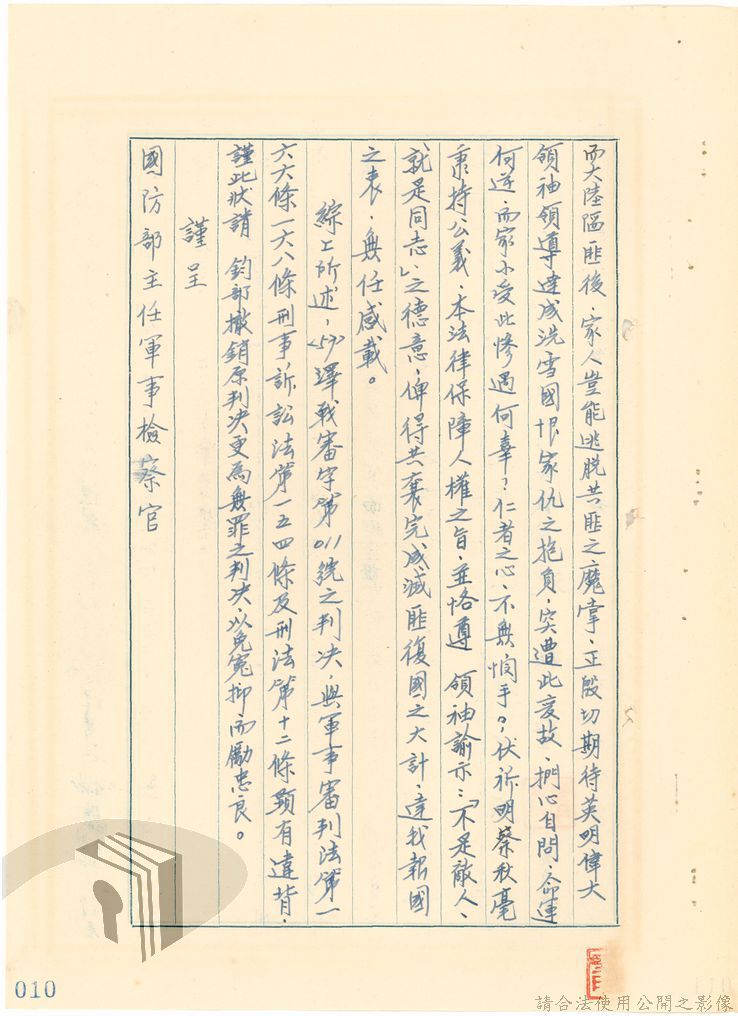 而大陸陷匪後，家人豈能逃脫共匪之魔掌，正殷切期待英明偉大
領袖領導達成洗雪國恨家仇之抱負，突遭此變故，捫心自問，命運
何逆，而家小受此慘遇何辜？仁者之心，不無憫乎。，伏祈明蔡秋毫
秉持公義，本法律保障人權之旨，並恪遵 領袖諭示：「不是敵人，
就是同志」之德意，俾得共襄完成滅匪復國之大計，達我報國
之衷，無任感載。
綜上所述，<57>譯戟審字第011號之判決，與軍事審判法第一
六六條一六八條刑事訴訟法第一五四條及刑法第十二條顯有違背，
謹此狀請 鈞部撤銷原判決更為無罪之判決，以免冤抑而勵忠良。
謹呈
國防部主任軍事檢察官
010
請合法使用公開之影像